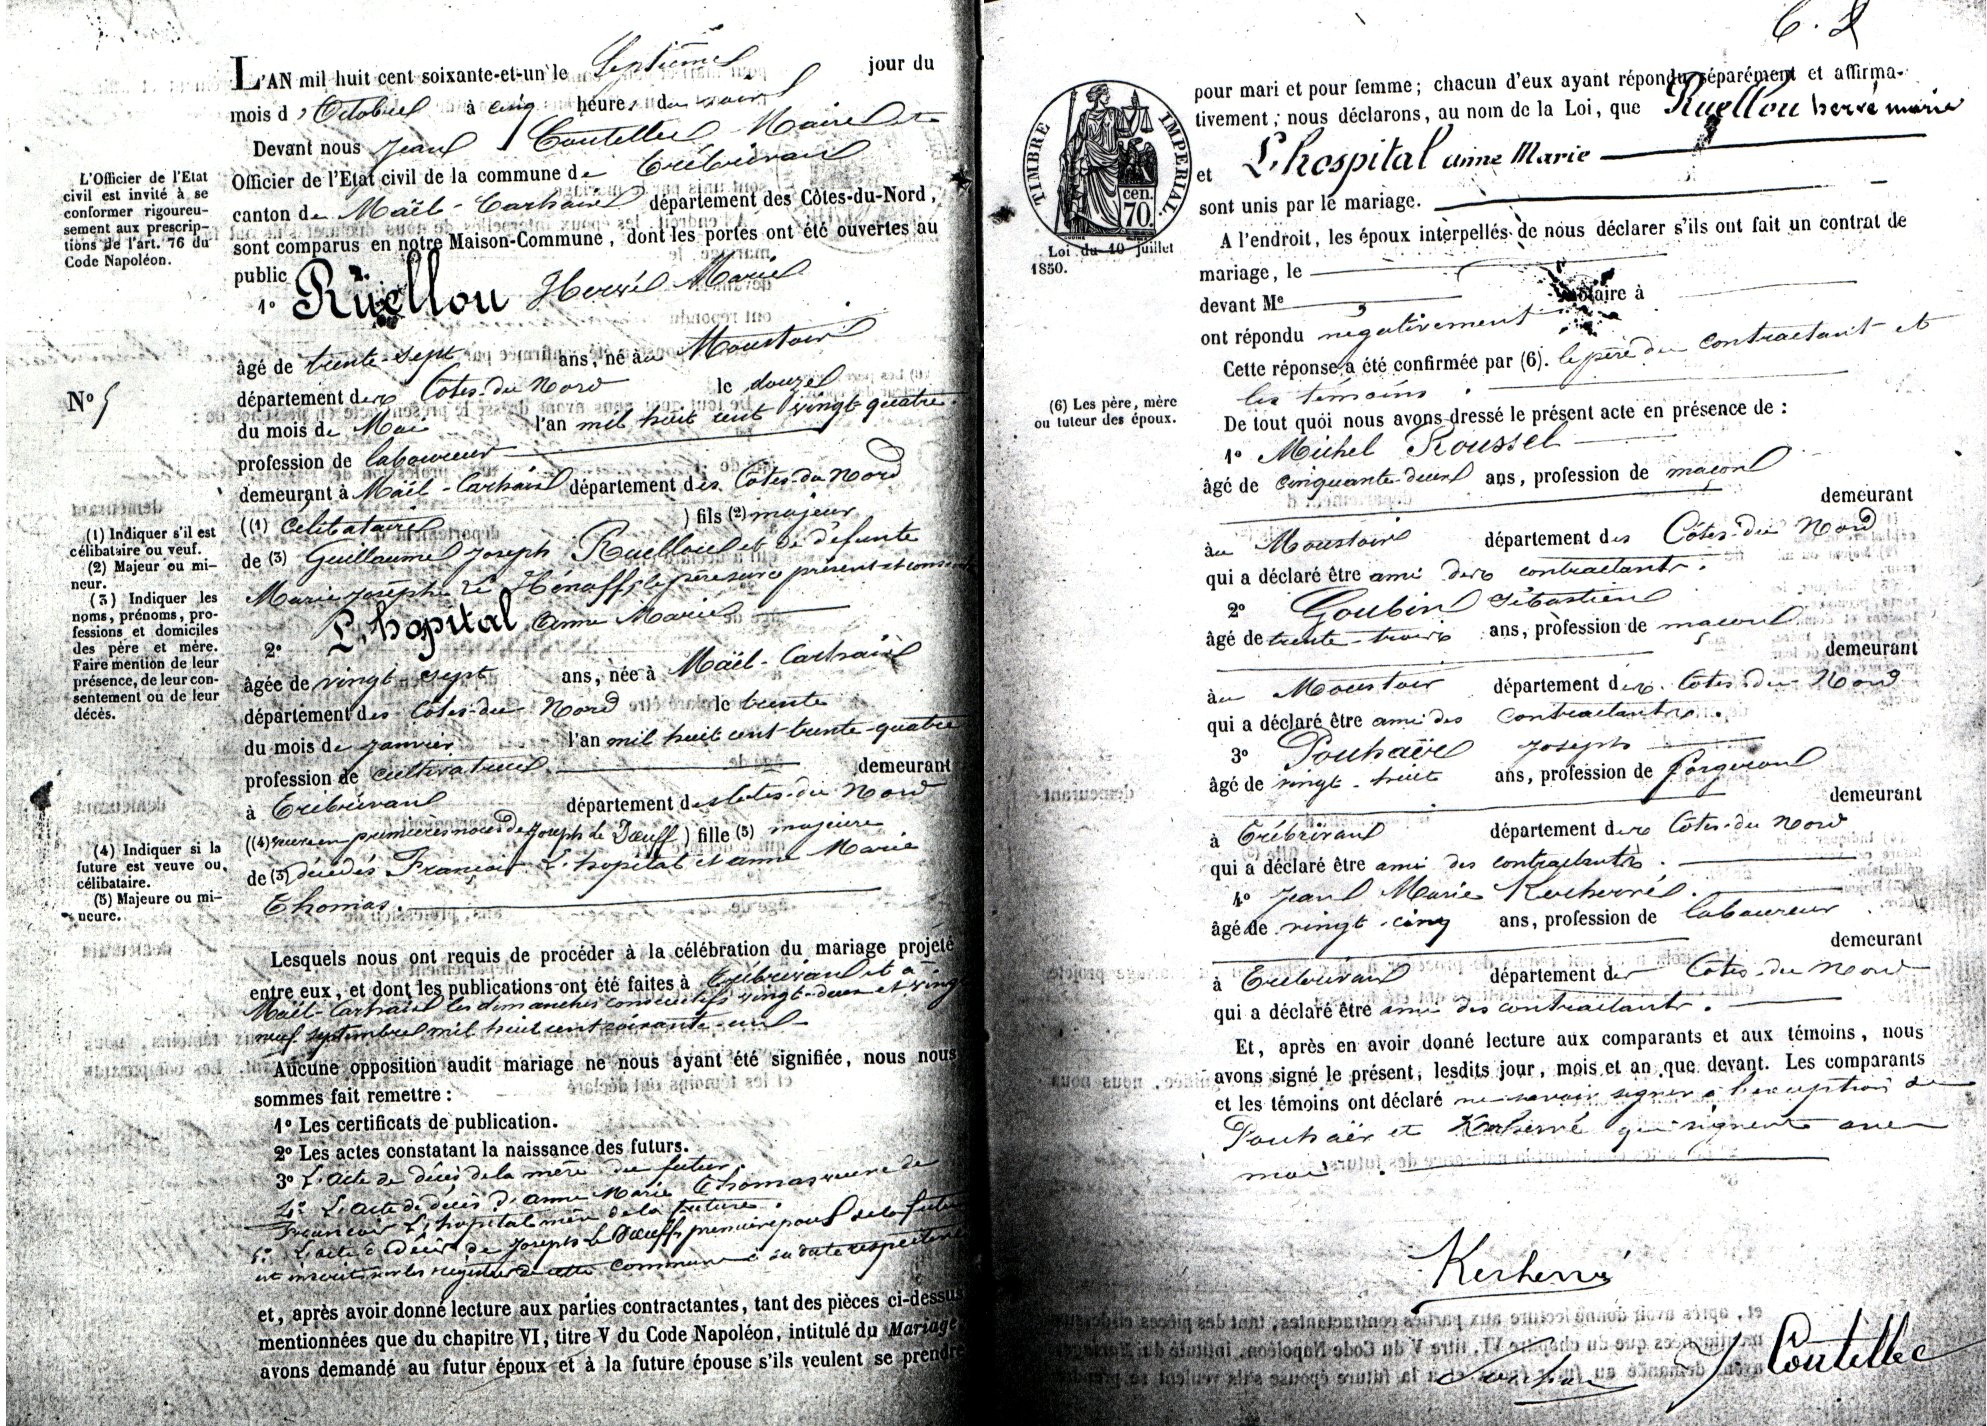 L'AN mil huit cent soixante-et-un le Septième jour du
mois d'Octobre à cinq heures du soir
Devant nous Jean Coutellec Maire et
Officier de l'Etat civil de la commune de Trébrivan
canton de Maël-Carhaix département des Côtes-du-Nord,
sont comparus en notre Maison-Commune, dont les portes ont été ouvertes au
public
1° Ruellou Hervé Marie
âgé de trente-sept ans, né au Moustoir
département des Côtes-du-Nord le douze
du mois de Mai l'an mil huit cent vingt-quatre.
profession de laboureur
demeurant à Maël-Carhaix département des Côtes-du-Nord
((1) célibataire ) fils (2) majeur
de (3) Guillaume Joseph Ruellou et de défunte
Marie Josèphe Le Hénaff, le père sur ce présent et consentant
2° L'hopital Anne Marie
âgée de vingt sept ans, née à Maël-Carhaix
département des Côtes-du-Nord le trente
du mois de janvier l'an mil huit cent trente-quatre
profession de cultivatrice demeurant
à Trébrivan département des Côtes-du-Nord
((4) veuve en premières noces de Joseph Le Dœuff ) fille (5) majeure
de (3) décédés François L'hopital et Anne Marie
Thomas.
Lesquels nous ont requis de procéder à la célébration du mariage projeté
entre eux, et dont les publications ont été faites à Trébrivan et à
Maël-Carhaix les dimanches consécutifs vingt-deux et vingt
neuf septembre mil huit cent soixante-un
Aucune opposition audit mariage ne nous ayant été signifiée, nous nous
sommes fait remettre :
1° Les certificats de publication.
2° Les actes constatant la naissance des futurs.
3° L'acte de décès de la mère du futur.
4° L'acte de décès d'Anne Marie Thomas veuve de
François L'hopital mère de la future.
5° L'acte de décès de Joseph Le Dœuff, premier époux de la future
et inscrits sur les registres de cette commune à sa date respective
et, après avoir donné lecture aux parties contractantes, tant des pièces ci-dessus
mentionnées que du chapitre VI, titre V du Code Napoléon, intitulé du Mariage,
avons demandé au futur époux et à la future épouse s'ils veulent se prendre
L'Officier de l'Etat
civil est invité à se
conformer rigoureu-
sement aux prescrip-
tions de l'art. 76 du
Code Napoléon.
N° 5
(1) Indiquer s'il est
célibataire ou veuf.
(2) Majeur ou mi-
neur.
(3) Indiquer les
noms, prénoms, pro-
fessions et domiciles
des père et mère.
Faire mention de leur
présence, de leur con-
sentement ou de leur
décès.
(4) Indiquer si la
future est veuve ou
célibataire.
(5) Majeure ou mi-
neure.
TIMBRE IMPERIAL.
70 cen.
Loi du 10 juillet
1850.
pour mari et pour femme; chacun d'eux ayant répondu séparément et affirma-
tivement; nous déclarons, au nom de la Loi, que Ruellou hervé marie
et L'hospital anne Marie
sont unis par le mariage.
A l'endroit, les époux interpellés de nous déclarer s'ils ont fait un contrat de
mariage, le
devant Me notaire à
ont répondu négativement
Cette réponse a été confirmée par (6). le père du contractant et
les témoins.
(6) Les père, mère
ou tuteur des époux.
De tout quoi nous avons dressé le présent acte en présence de :
1° Michel Roussel
âgé de cinquante-deux ans, profession de maçon
demeurant
au Moustoir département des Côtes-du-Nord
qui a déclaré être ami des contractants.
2° Goubin Sébastien
âgé de trente-trois ans, profession de maçon
demeurant
au Moustoir département des Côtes-du-Nord
qui a déclaré être ami des contractants.
3° Pouhaër Joseph
âgé de vingt-huit ans, profession de forgeron
demeurant
à Trébrivan département des Côtes-du-Nord
qui a déclaré être ami des contractants.
4° Jean Marie Kerhervé.
âgé de vingt-cinq ans, profession de laboureur
demeurant
à Trébrivan département des Côtes-du-Nord
qui a déclaré être ami des contractants.
Et, après en avoir donné lecture aux comparants et aux témoins, nous
avons signé le présent, lesdits jour, mois et an que devant. Les comparants
et les témoins ont déclaré ne savoir signer à l'exception de
Pouhaër et Kerhervé qui signent avec
moi.
Kerhervé
J Coutellec